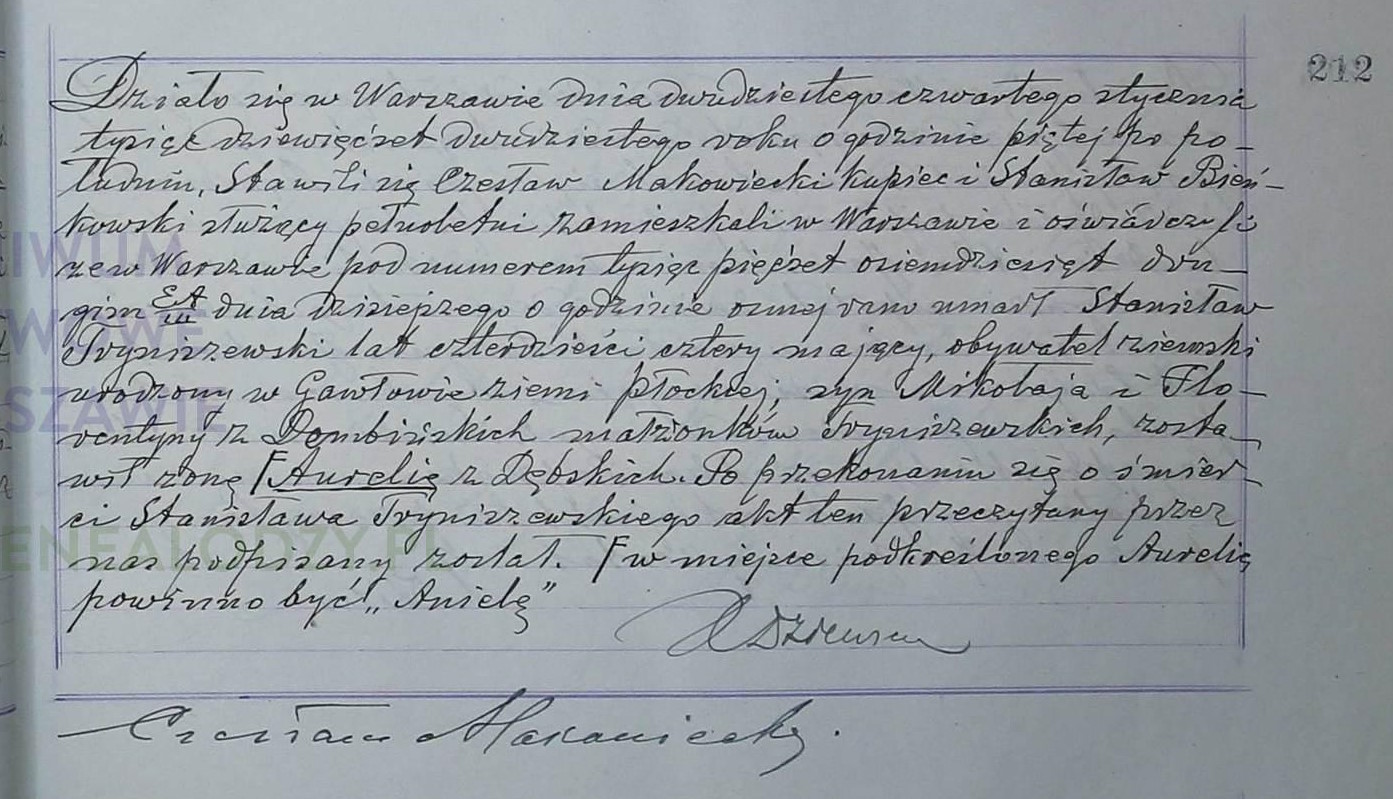 212
Działo się w Warszawie dnia dwudziestego czwartego stycznia
tysiąc dziewięćset dwudziestego roku o godzinie piątej po po-
łudniu, Stawili się Czesław Makowiecki kupiec i Stanisław Bień-
kowski służący pełnoletni zamieszkali w Warszawie i oświadczyli
że w Warszawie pod numerem tysiąc pięćset osiemdziesiąt dru-
gim EA/III dnia dzisiejszego o godzinie ósmej rano umarł Stanisław
Tryniszewski lat czterdzieści cztery mający, obywatel ziemski
urodzony w Gawłowie ziemi płockiej, syn Mikołaja i Flo-
rentyny z Dembińskich małżonków Tryniszewskich, zosta-
wił żonę Aurelię z Dębskich. Po przekonaniu się o śmier-
ci Stanisława Tryniszewskiego akt ten przeczytany przez
nas podpisany został. w miejsce podkreślonego Aurelię
powinno być „Anielę”
Czesław Makowiecki.
IWUM
WOWE
SZAWIE
GENEALODZY.PL